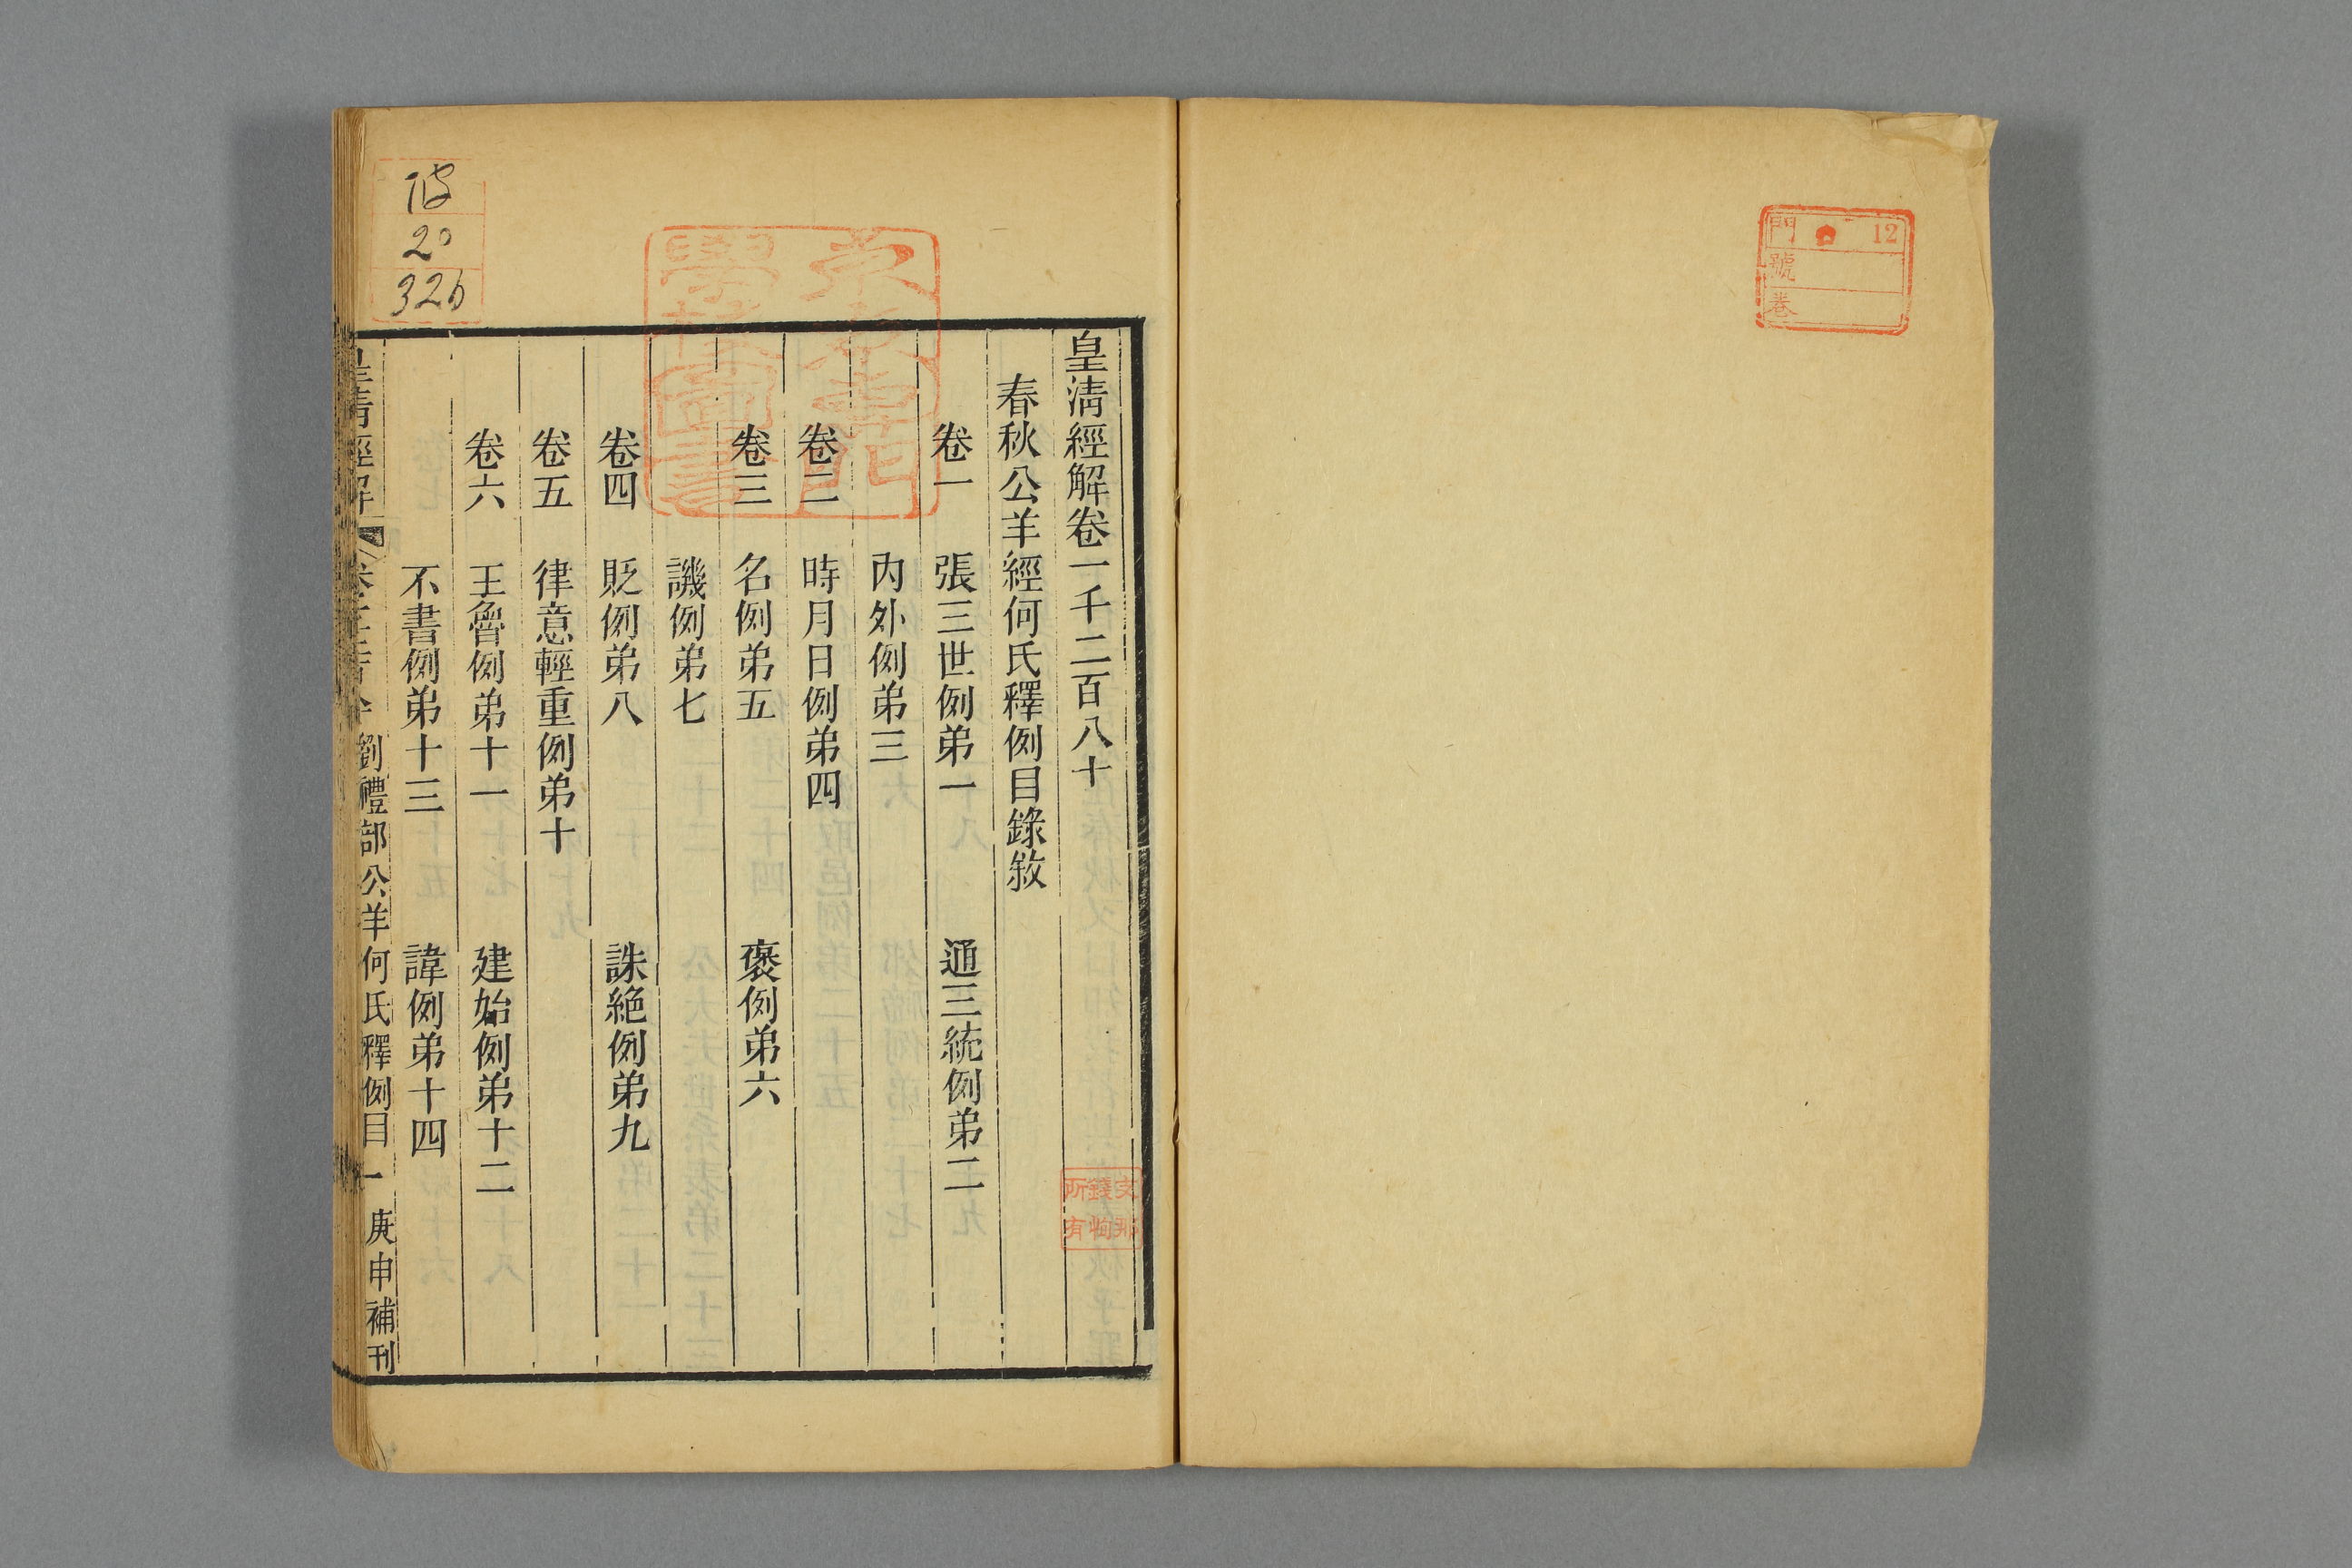 門 12
號
卷
皇淸經解卷一千二百八十
春秋公羊經何氏釋例目錄敘
卷一 張三世例弟一 通三統例弟二
內外例弟三
卷二 時月日例弟四
卷三 名例弟五 褒例弟六
譏例弟七
卷四 貶例弟八 誅絶例弟九
卷五 律意輕重例弟十
卷六 王魯例弟十一 建始例弟十二
不書例弟十三 諱例弟十四
皇淸經解 劉禮部公羊何氏釋例目 一 庚申補刊
20
326